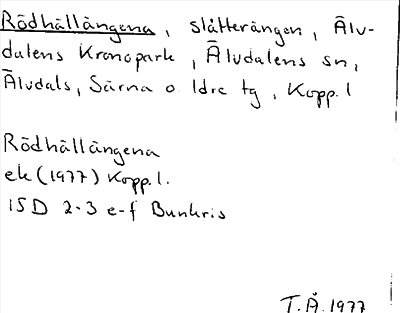 Rödhällängena, slåtterängen, Älv-
dalens Kronopark, Älvdalens sn,
Älvdals, Särna o Idre tg, Kopp. l
Rödhällängena
ek (1977) Kopp. l.
15D 2-3 e-f Bunkris
T.Å. 1977